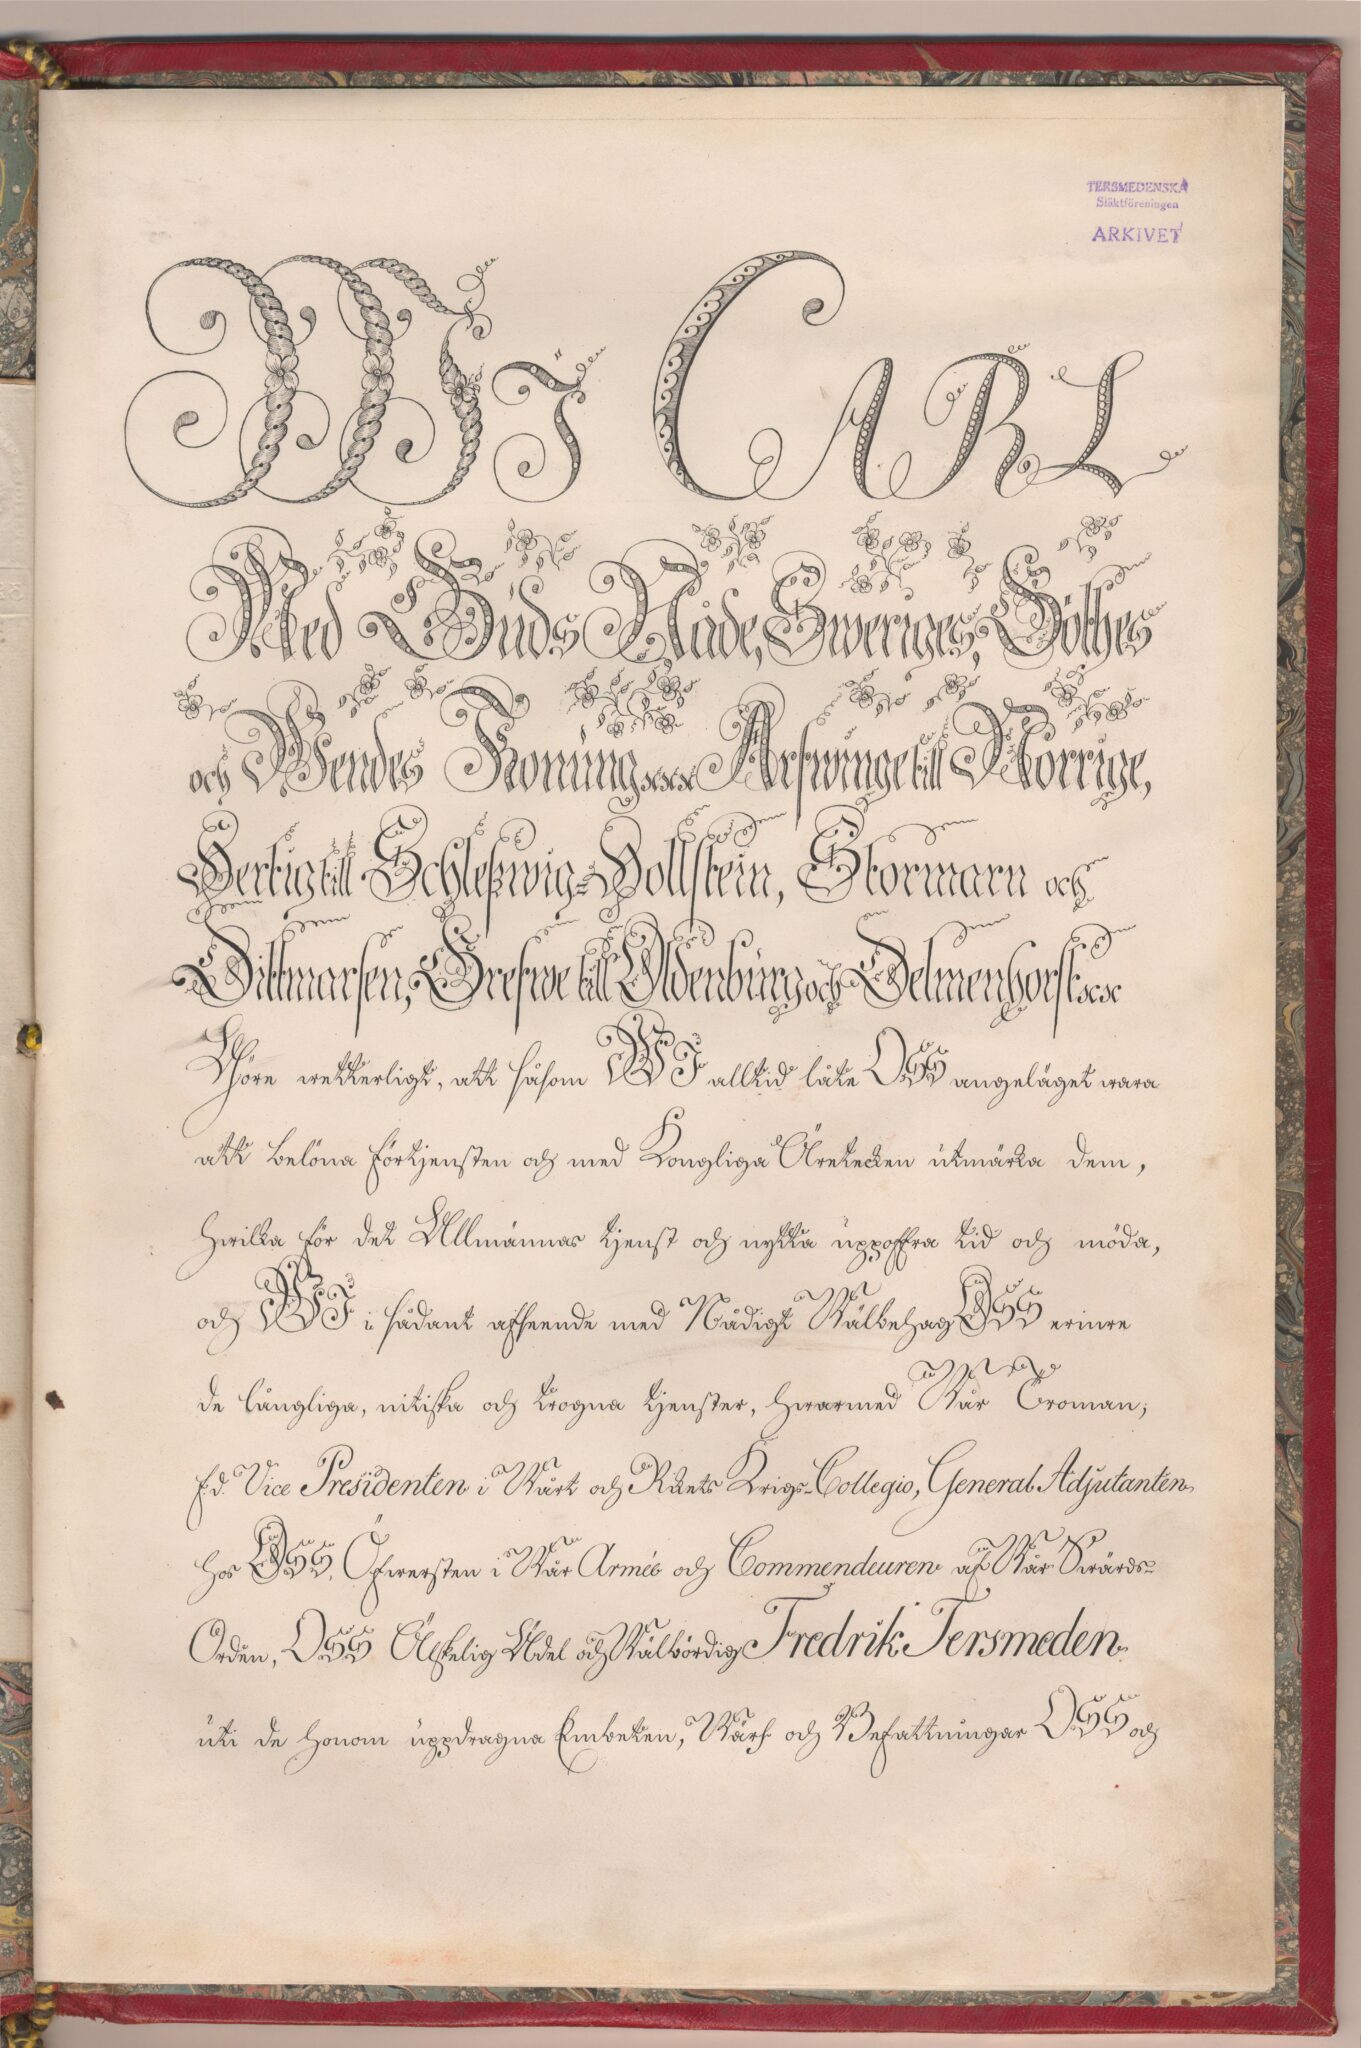 TERSMEDENSKA
Släktföreningen
ARKIVET
Wi CARL
Med Guds Nåde, Sweriges, Göthes
och Wendes Konung &c&c&c Arfwinge till Norrige,
Hertig till Schleßwig-Hollstein, Stormarn och
Dittmarsen, Grefwe till Oldenburg och Delmenhorst &c&c
Göre wetterligt, att såsom WI alltid låte OSS angeläget wara
att belöna förtjensten och med Kongliga Äretecken utmärka dem,
hwilka för det Allmännas tjenst och nytta uppoffra tid och möda,
och WI i sådant afseende med Nådigt Wälbehag OSS erinre
de långliga, nitiska och trogna tjenster, hwarmed Wår Troman,
f.d. Vice Presidenten i Wårt och Rikets Krigs-Collegio, General Adjutanten
hos OSS, Öfwersten i Wår Armée och Commendeuren af Wår Swärds-
Orden, OSS Älskelig Ädel och Wälbördig Fredrik Tersmeden
uti de honom uppdragna Embeten, Wärf och Befattningar OSS och